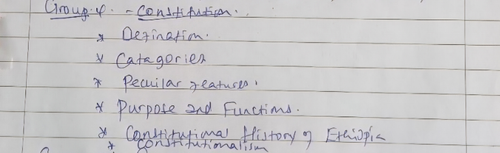 Group.4. - Constitution.
* Defination.
* Catagories
* Peculiar features.
* Purpose and Functions.
* Constitutional History of Ethiopia
* Constitutionalism